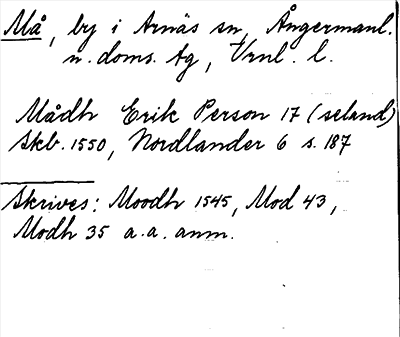 Må, by i Arnäs sn, Ångermanl.
n. doms. tg, Vrnl. l.
Mådh Erik Person 17 (seland)
Skb. 1550, Nordlander 6 s. 187
Skrives: Moodh 1545, Mod 43,
Modh 35 a.a. anm.